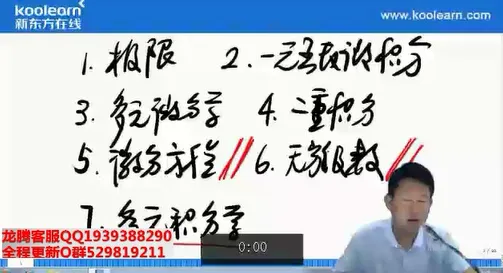 koolearn
新东方在线
www.koolearn.com
1. 极限 2. 一元函数微积分
3. 多元微分学 4. 二重积分
5. 微分方程 6. 无穷级数
7. 多元积分学
龙腾客服QQ1939388290
全程更新Q群529819211
0:00